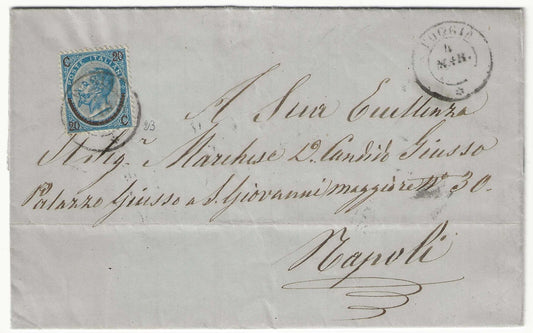 C 20
POSTE ITALIANE
20 C
FOGGIA
4
MAR.
23
A Sua Eccellenza
Il Sig.r Marchese D. Candido Giusso
Palazzo Giusso a S. Giovanni maggiore No 30.
Napoli